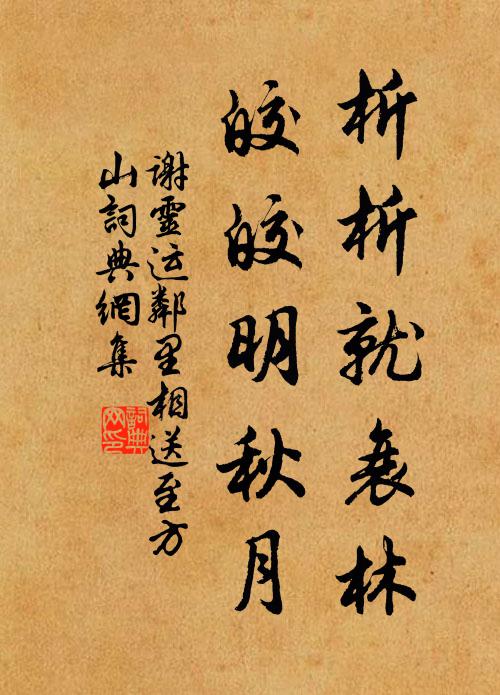 析析就衰林
皎皎明秋月
谢靈运鄰里相送至方
山詞典網集
詞典網印